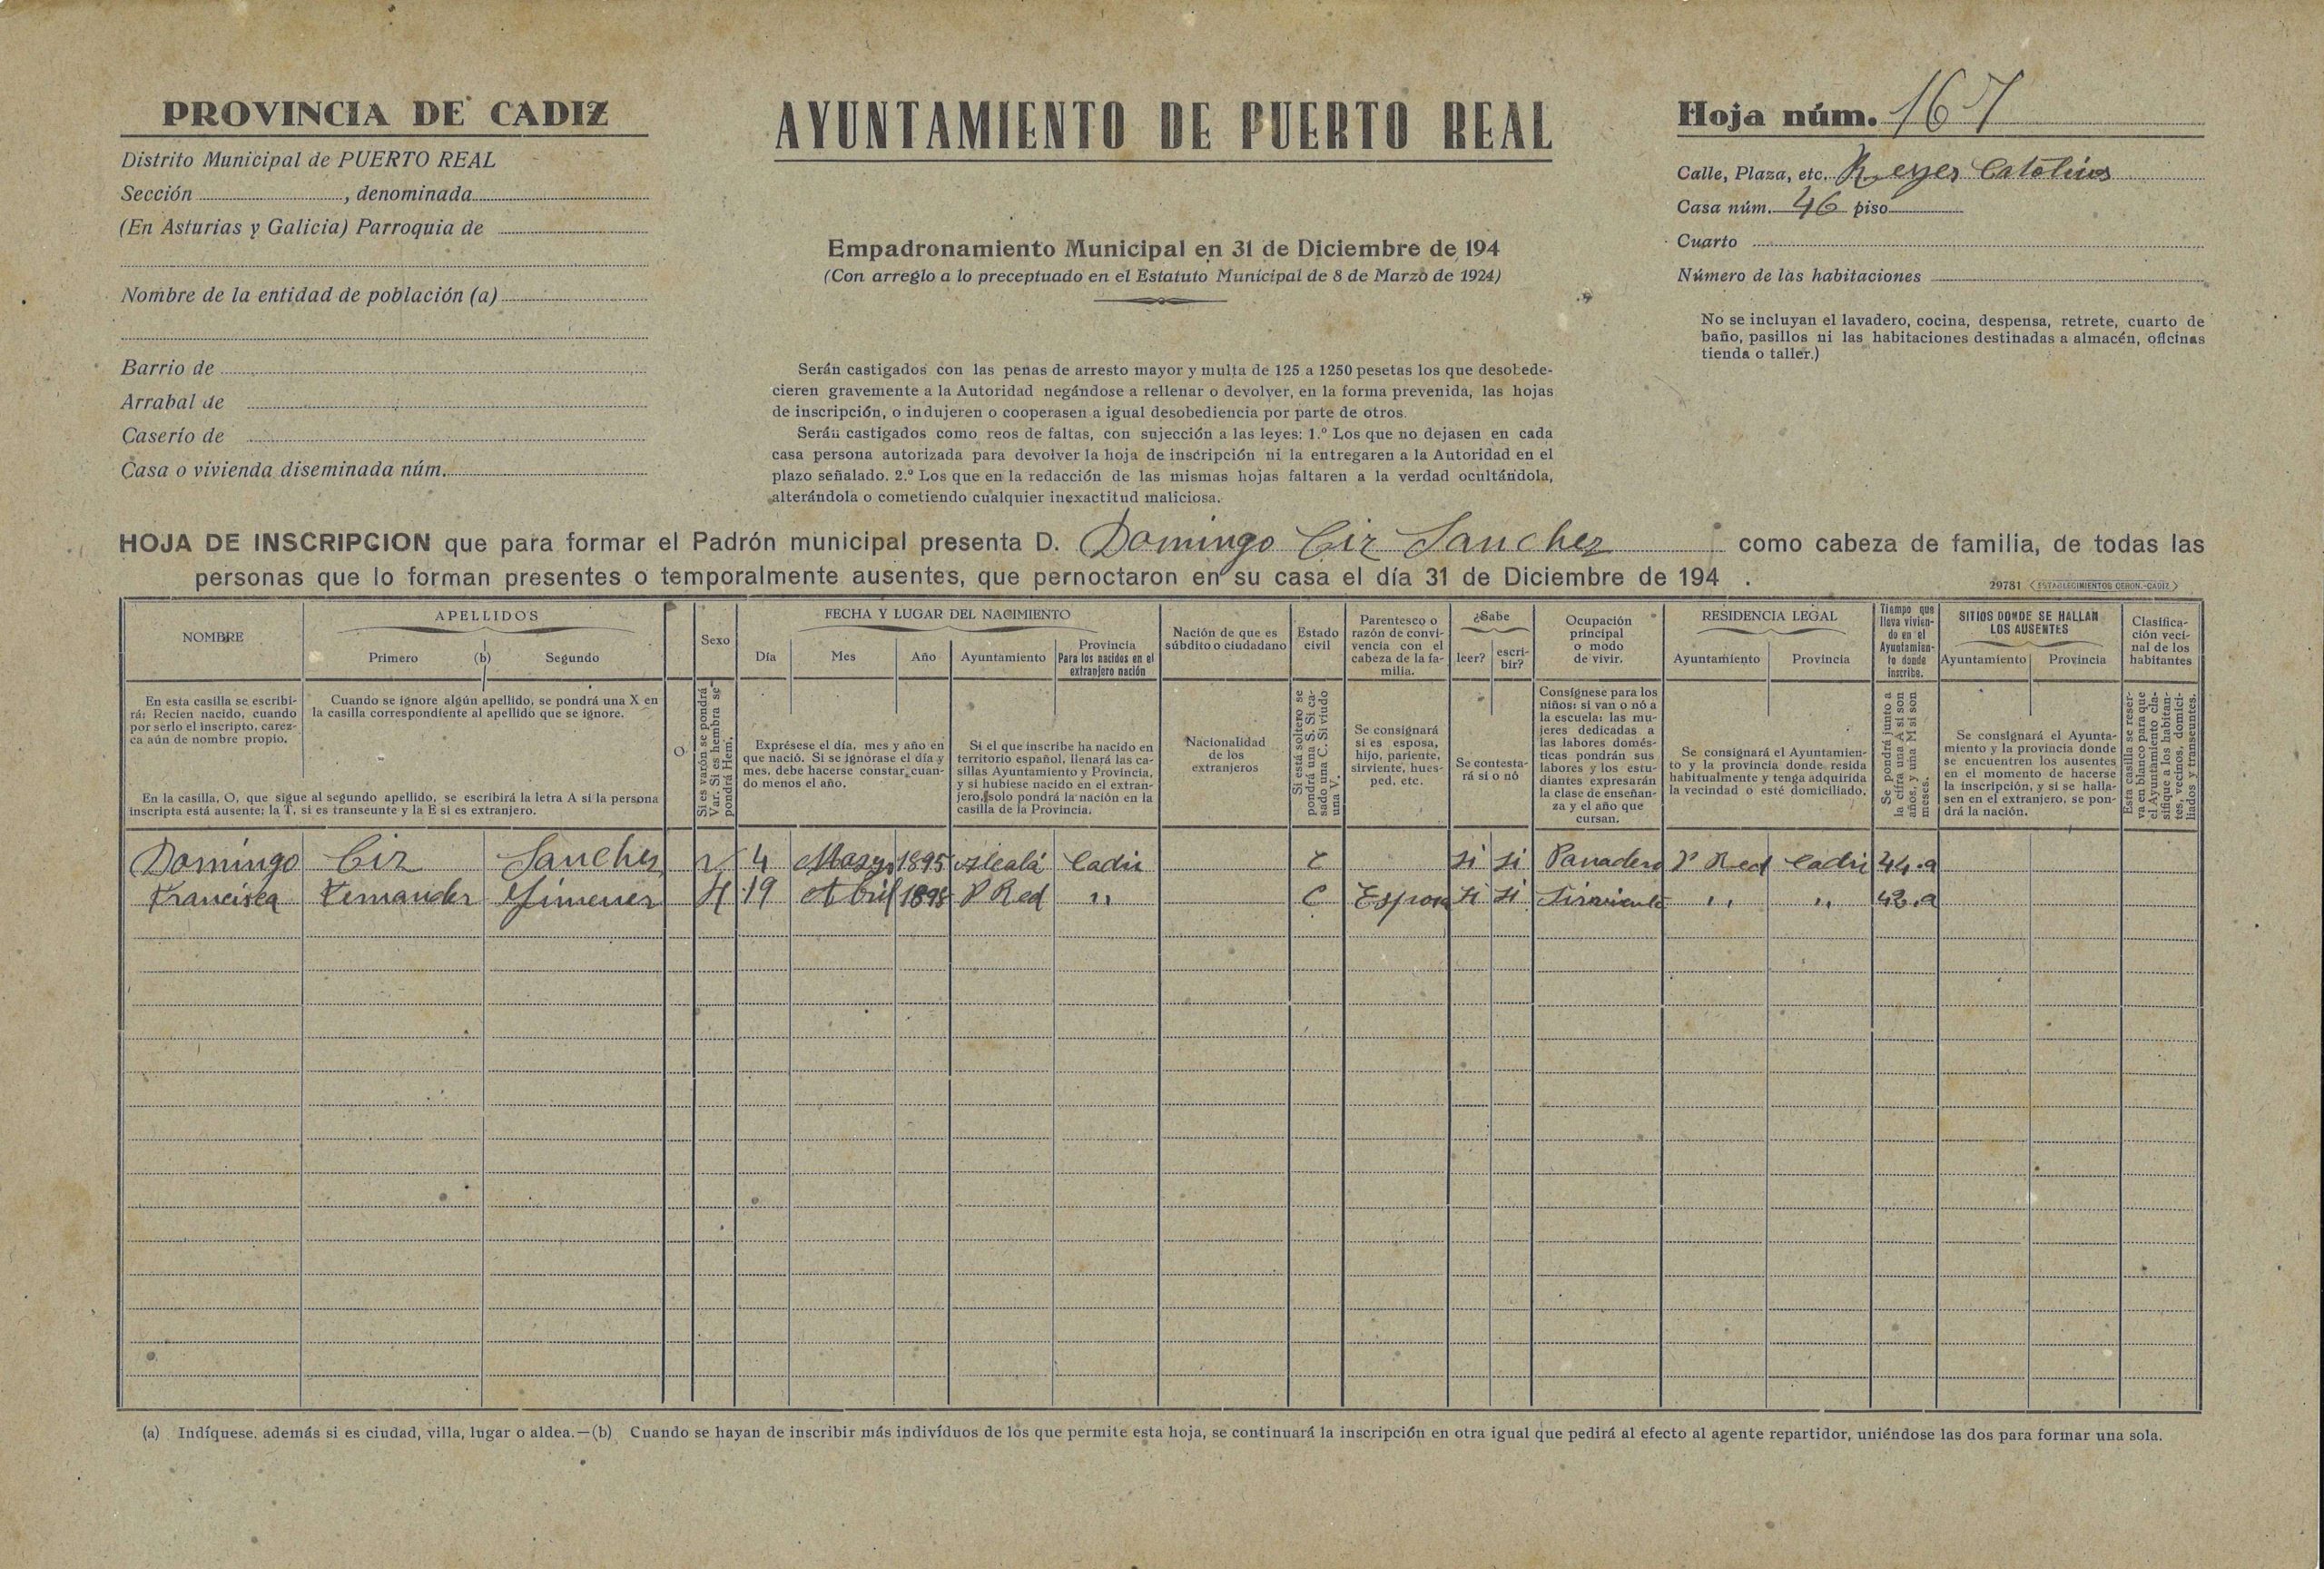 PROVINCIA DE CADIZ
Distrito Municipal de PUERTO REAL
Sección , denominada
(En Asturias y Galicia) Parroquia de
Nombre de la entidad de población (a)
Barrio de
Arrabal de
Caserío de
Casa o vivienda diseminada núm.
AYUNTAMIENTO DE PUERTO REAL
Empadronamiento Municipal en 31 de Diciembre de 194
(Con arreglo a lo preceptuado en el Estatuto Municipal de 8 de Marzo de 1924)
Serán castigados con las penas de arresto mayor y multa de 125 a 1250 pesetas los que desobede-
cieren gravemente a la Autoridad negándose a rellenar o devolver, en la forma prevenida, las hojas
de inscripción, o indujeren o cooperasen a igual desobediencia por parte de otros.
Serán castigados como reos de faltas, con sujección a las leyes: 1.º Los que no dejasen en cada
casa persona autorizada para devolver la hoja de inscripción ni la entregaren a la Autoridad en el
plazo señalado. 2.º Los que en la redacción de las mismas hojas faltaren a la verdad ocultándola,
alterándola o cometiendo cualquier inexactitud maliciosa.
Hoja núm. 167
Calle, Plaza, etc. Reyes Catolicos
Casa núm. 46 piso
Cuarto
Número de las habitaciones
No se incluyan el lavadero, cocina, despensa, retrete, cuarto de
baño, pasillos ni las habitaciones destinadas a almacén, oficinas
tienda o taller.)
HOJA DE INSCRIPCION que para formar el Padrón municipal presenta D. Domingo Ciz Sanchez como cabeza de familia, de todas las
personas que lo forman presentes o temporalmente ausentes, que pernoctaron en su casa el día 31 de Diciembre de 194 .
29781 (ESTABLECIMIENTOS CERON.-CADIZ)
NOMBRE
APELLIDOS
Primero (b) Segundo
Sexo
FECHA Y LUGAR DEL NACIMIENTO
Día Mes Año Ayuntamiento
Provincia
Para los nacidos en el
extranjero nación
Nación de que es
súbdito o ciudadano
Estado
civil
Parentesco o
razón de convi-
vencia con el
cabeza de la fa-
milia.
¿Sabe
leer? escri-
bir?
Ocupación
principal
o modo
de vivir.
RESIDENCIA LEGAL
Ayuntamiento Provincia
Tiempo que
lleva vivien-
do en el
Ayuntamien-
to donde
inscribe.
SITIOS DONDE SE HALLAN
LOS AUSENTES
Ayuntamiento Provincia
Clasifica-
ción veci-
nal de los
habitantes
En esta casilla se escribi-
rá: Recien nacido, cuando
por serlo el inscripto, carez-
ca aún de nombre propio.
Cuando se ignore algún apellido, se pondrá una X en
la casilla correspondiente al apellido que se ignore.
En la casilla, O, que sigue al segundo apellido, se escribirá la letra A si la persona
inscripta está ausente; la T, si es transeunte y la E si es extranjero.
O
Si es varón se pondrá
Var. Si es hembra se
pondrá Hem.
Exprésese el día, mes y año en
que nació. Si se ignórase el día y
mes, debe hacerse constar cuan-
do menos el año.
Si el que inscribe ha nacido en
territorio español, llenará las ca-
sillas Ayuntamiento y Provincia,
y si hubiese nacido en el extran-
jero, solo pondrá la nación en la
casilla de la Provincia.
Nacionalidad
de los
extranjeros
Si está soltero se
pondrá una S. Si ca-
sado una C. Si viudo
una V.
Se consignará
si es esposa,
hijo, pariente,
sirviente, hues-
ped, etc.
Se contesta-
rá si o nó
Consígnese para los
niños: si van o nó a
la escuela: las mu-
jeres dedicadas a
las labores domés-
ticas pondrán sus
labores y los estu-
diantes expresarán
la clase de enseñan-
za y el año que
cursan.
Se consignará el Ayuntamien-
to y la provincia donde resida
habitualmente y tenga adquirida
la vecindad o esté domiciliado.
Se pondrá junto a
la cifra una A si son
años, y una M si son
meses.
Se consignará el Ayunta-
miento y la provincia donde
se encuentren los ausentes
en el momento de hacerse
la inscripción, y si se halla-
sen en el extranjero, se pon-
drá la nación.
Esta casilla se reser-
va en blanco para que
el Ayuntamiento cla-
sifique a los habitan-
tes, vecinos, domici-
liados y transeuntes.
Domingo Ciz Sanchez V 4 Mayo 1895 Alcalá Cadiz C si si Panadero P Real Cadiz 44.a
Francisca Fernandez Jimenez H 19 Abril 1898 P Real " C Esposa si si " " 42.a
(a) Indíquese. además si es ciudad, villa, lugar o aldea.—(b) Cuando se hayan de inscribir más indivíduos de los que permite esta hoja, se continuará la inscripción en otra igual que pedirá al efecto al agente repartidor, uniéndose las dos para formar una sola.